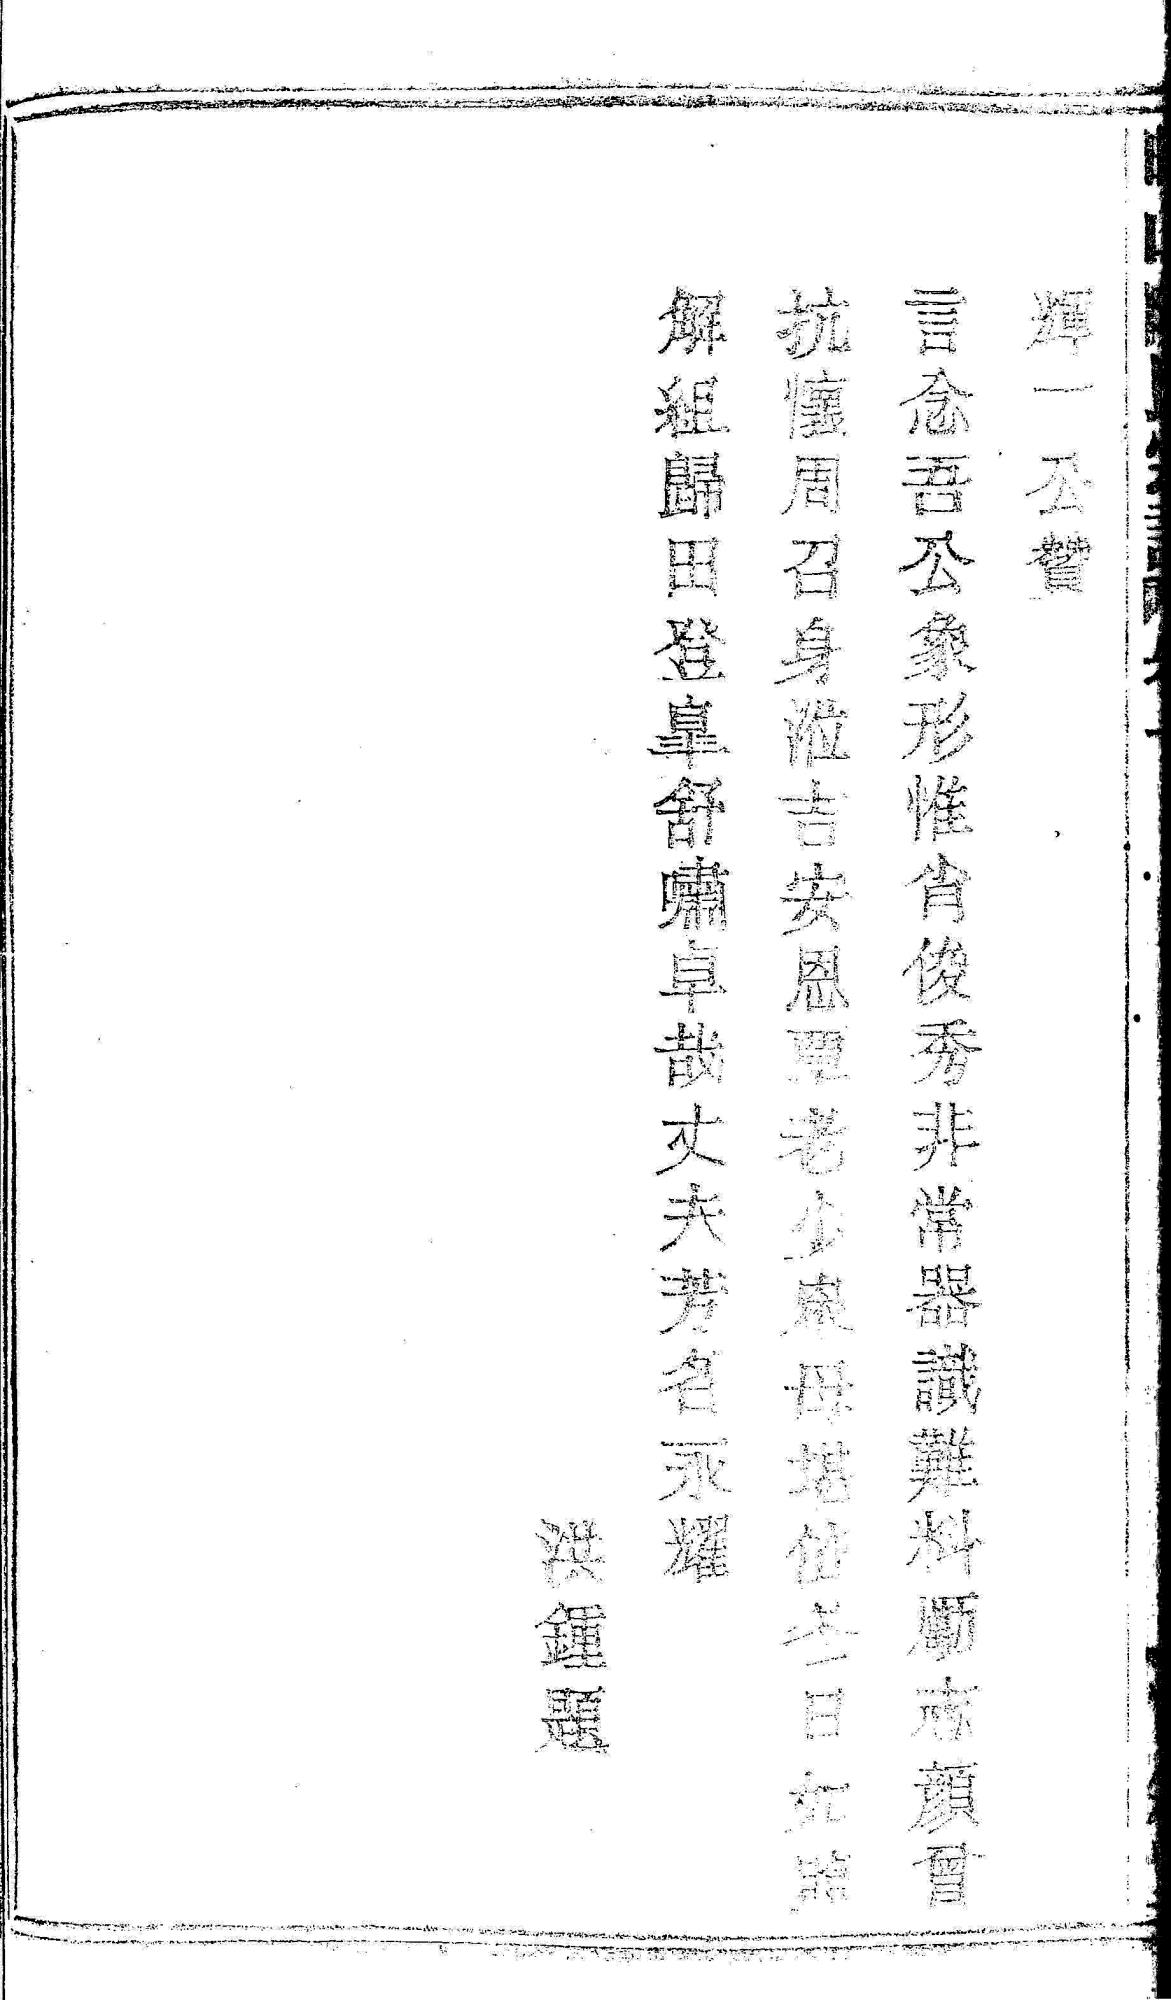 輝一公贊
言念吾公象形惟肖俊秀非常器識難料勵志顏曾
抗懷周召身涖吉安恩覃老少庶母堪作
日如
解組歸田登皐舒嘯卓哉丈夫芳名永耀
洪鍾題